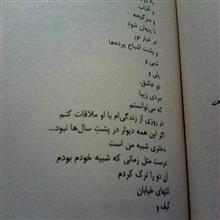 و آفتاب
و سرگیجه
تا پنهان شود
در غبار نور
و پشت اشباح پرده‌ها
شبی و
پلی و
دو عاشق،
مردی زیبا
که می‌توانستم
در روزی از زندگی‌ام با او ملاقات کنم
اگر این همه دیوار در پشتِ سال‌ها نبود...
دختری شبیه من است
درست مثل زمانی که شبیه خودم بودم
آن دو را ترک کردم
انتهای خیابان
کیف و